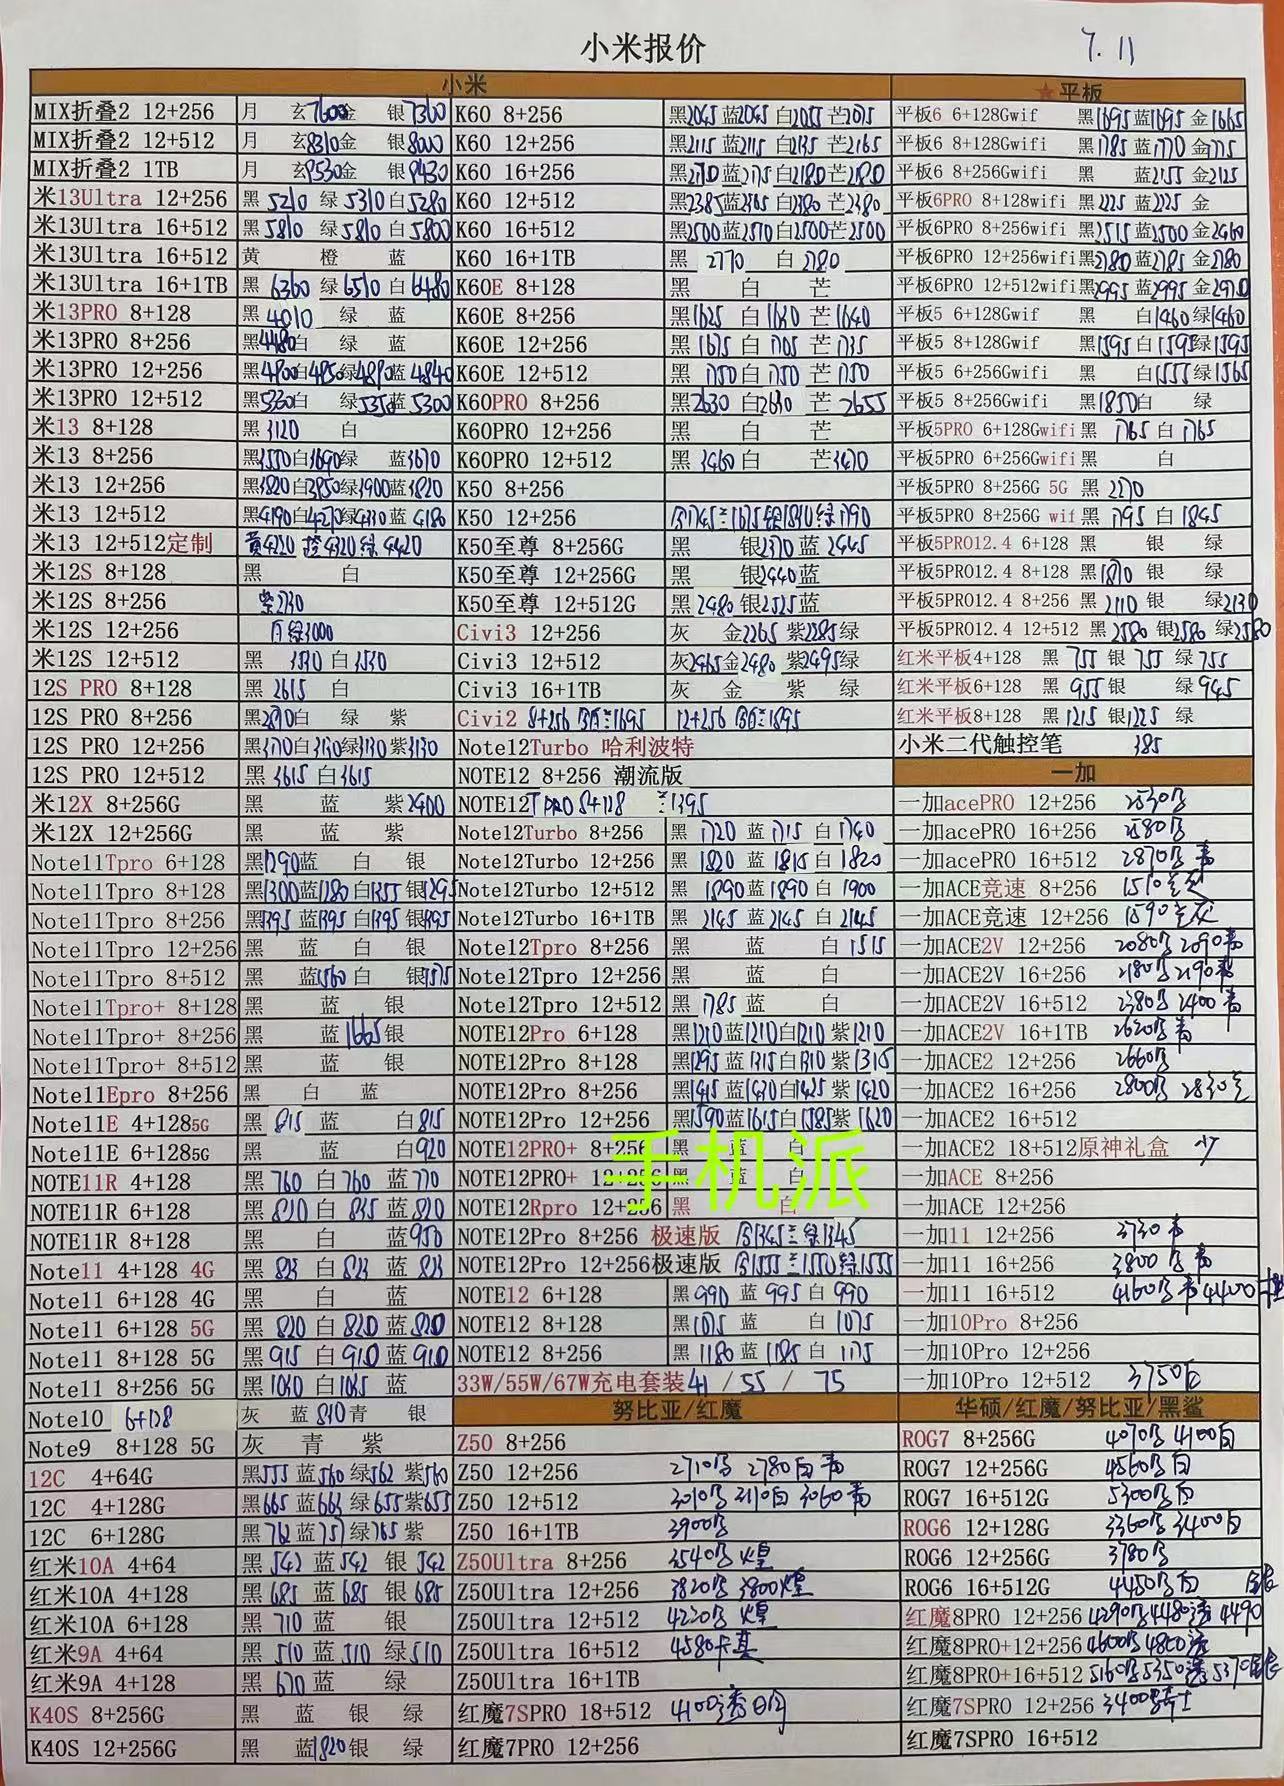 小米报价 7.11
小米
MIX折叠2 12+256 月 玄7600金 银7360
MIX折叠2 12+512 月 玄8310金 银8000
MIX折叠2 1TB 月 玄9530金 银9430
米13Ultra 12+256 黑 5210 绿 5310 白 5280
米13Ultra 16+512 黑 5810 绿 5810 白 5800
米13Ultra 16+512 黄 橙 蓝
米13Ultra 16+1TB 黑 6360 绿 6510 白 6480
米13PRO 8+128 黑 4010 绿 蓝
米13PRO 8+256 黑4480白 绿 蓝
米13PRO 12+256 黑4800白4850绿4890蓝 4840
米13PRO 12+512 黑5330白 绿5350蓝 5300
米13 8+128 黑 3120 白
米13 8+256 黑3550白3690绿 蓝3670
米13 12+256 黑3820白3850绿3900蓝3820
米13 12+512 黑4190白4270绿4330蓝 4180
米13 12+512定制 黄4220 橙 4320 绿 4420
米12S 8+128 黑 白
米12S 8+256 紫2730
米12S 12+256 白绿3000
米12S 12+512 黑 3530 白 3530
12S PRO 8+128 黑 2615 白
12S PRO 8+256 白 绿 紫
12S PRO 12+256 黑3170白3130绿3130紫3130
12S PRO 12+512 黑 3615 白 3615
米12X 8+256G 黑 蓝 紫2400
米12X 12+256G 黑 蓝 紫
Note11Tpro 6+128 黑1290蓝 白 银
Note11Tpro 8+128 黑1300蓝1280白1355 银1295
Note11Tpro 8+256 黑1395蓝1395白1395银1395
Note11Tpro 12+256 黑 蓝 白 银
Note11Tpro 8+512 黑 蓝1560白 银1575
Note11Tpro+ 8+128 黑 蓝 银
Note11Tpro+ 8+256 黑 蓝1665银
Note11Tpro+ 8+512 黑 蓝 银
Note11Epro 8+256 黑 白 蓝
Note11E 4+1285G 黑 815 蓝 白 815
Note11E 6+1285G 黑 蓝 白920
NOTE11R 4+128 黑 760 白 760 蓝 770
NOTE11R 6+128 黑 820 白 835 蓝 820
NOTE11R 8+128 黑 白 蓝950
Note11 4+128 4G 黑 823 白 823 蓝 823
Note11 6+128 4G 黑 白 蓝
Note11 6+128 5G 黑 820 白 820 蓝 820
Note11 8+128 5G 黑 915 白 910 蓝 910
Note11 8+256 5G 黑 1030 白1035 蓝
Note10 6+128 灰 蓝 810 青 银
Note9 8+128 5G 灰 青 紫
12C 4+64G 黑555 蓝 560 绿562 紫560
12C 4+128G 黑665 蓝 663 绿 655 紫655
12C 6+128G 黑 762 蓝 757 绿765 紫
红米10A 4+64 黑 542 蓝 542 银 542
红米10A 4+128 黑 685 蓝 685 银 685
红米10A 6+128 黑 710 蓝 银
红米9A 4+64 黑 510 蓝 510 绿 510
红米9A 4+128 黑 670 蓝 绿
K40S 8+256G 黑 蓝 银 绿
K40S 12+256G 黑 蓝1820银 绿
K60 8+256 黑2045 蓝2045 白2055 芒2075
K60 12+256 黑2115 蓝2115 白2135 芒2165
K60 16+256 黑2170 蓝2175 白2180 芒2180
K60 12+512 黑2385蓝2365 白2380 芒2380
K60 16+512 黑2500蓝2510白2500芒2500
K60 16+1TB 黑 2770 白 2780
K60E 8+128 黑 白 芒
K60E 8+256 黑1625 白 1630 芒 1640
K60E 12+256 黑 1675 白 1705 芒 1735
K60E 12+512 黑 1750 白 1750 芒 1750
K60PRO 8+256 黑2630 白2640 芒 2655
K60PRO 12+256 黑 白 芒
K60PRO 12+512 黑 3460 白 芒3470
K50 8+256
K50 12+256 白1745兰1675银1830绿1790
K50至尊 8+256G 黑 银2370 蓝 2445
K50至尊 12+256G 黑 银2440蓝
K50至尊 12+512G 黑 2480 银2525蓝
Civi3 12+256 灰 金2265 紫2285绿
Civi3 12+512 灰2465金2480 紫2495绿
Civi3 16+1TB 灰 金 紫 绿
Civi2 8+256 兰1695 12+256 兰1895
Note12Turbo 哈利波特
NOTE12 8+256 潮流版
NOTE12T PRO 8+128 兰1395
Note12Turbo 8+256 黑 1720 蓝 1715 白 1740
Note12Turbo 12+256 黑 1820 蓝 1815 白 1820
Note12Turbo 12+512 黑 1890 蓝 1890 白 1900
Note12Turbo 16+1TB 黑 2145 蓝 2145 白 2145
Note12Tpro 8+256 黑 蓝 白 1515
Note12Tpro 12+256 黑 蓝 白
Note12Tpro 12+512 黑 1785 蓝 白
NOTE12Pro 6+128 黑1210蓝1210白1210 紫1210
NOTE12Pro 8+128 黑1295 蓝1315白1310 紫1315
NOTE12Pro 8+256 黑1415 蓝1430白1425 紫1420
NOTE12Pro 12+256 黑1590蓝1615白1585紫1620
NOTE12PRO+ 8+256 黑 蓝 白
NOTE12PRO+ 12+256 黑 蓝 白
NOTE12Rpro 12+256 黑 白
NOTE12Pro 8+256 极速版 白1345兰 绿1345
NOTE12Pro 12+256极速版 白1555兰1550绿1555
NOTE12 6+128 黑 990 蓝 995 白 990
NOTE12 8+128 黑1075 蓝 白 1075
NOTE12 8+256 黑 1180 蓝 1185 白 1175
33W/55W/67W充电套装41 / 55 / 75
努比亚/红魔
Z50 8+256
Z50 12+256 2710黑 2780白 青
Z50 12+512 3010黑 3110白 3060青
Z50 16+1TB 3900黑
Z50Ultra 8+256 3540黑 煌
Z50Ultra 12+256 3820黑 3800煌
Z50Ultra 12+512 4220黑 煌
Z50Ultra 16+512 4580
Z50Ultra 16+1TB
红魔7SPRO 18+512 4100透
红魔7PRO 12+256
★平板
平板6 6+128Gwif 黑1695蓝1695 金1665
平板6 8+128Gwifi 黑1785 蓝1770 金1775
平板6 8+256Gwifi 黑 蓝2155 金2125
平板6PRO 8+128wifi 黑2225 蓝2225 金
平板6PRO 8+256wifi 黑2515蓝2500 金2460
平板6PRO 12+256wifi黑2780蓝2785 金2780
平板6PRO 12+512wifi黑2995蓝2995金2970
平板5 6+128Gwif 黑 白1460绿1460
平板5 8+128Gwif 黑1595白1595绿1595
平板5 6+256Gwif 黑 白1555绿1565
平板5 8+256Gwifi 黑1850白 绿
平板5PRO 6+128Gwifi 黑 1765 白 1765
平板5PRO 6+256Gwifi黑 白
平板5PRO 8+256G 5G 黑 2170
平板5PRO 8+256G wif 黑 1795 白 1845
平板5PRO12.4 6+128 黑 银 绿
平板5PRO12.4 8+128 黑1870 银 绿
平板5PRO12.4 8+256 黑 2110 银 绿2130
平板5PRO12.4 12+512 黑 2580 银2580 绿2580
红米平板4+128 黑 755 银 755 绿 755
红米平板6+128 黑 955 银 绿945
红米平板8+128 黑 1215 银1225 绿
小米二代触控笔 385
一加
一加acePRO 12+256 2530黑
一加acePRO 16+256 2580黑
一加acePRO 16+512 2870黑 青
一加ACE竞速 8+256 1510
一加ACE竞速 12+256 1590
一加ACE2V 12+256 2080黑 2090青
一加ACE2V 16+256 2180黑 2190青
一加ACE2V 16+512 2380黑 2400 青
一加ACE2V 16+1TB 2620黑 青
一加ACE2 12+256 2660黑
一加ACE2 16+256 2800黑 2830
一加ACE2 16+512
一加ACE2 18+512原神礼盒 少
一加ACE 8+256
一加ACE 12+256
一加11 12+256 3730 青
一加11 16+256 3800 黑 青
一加11 16+512 4160黑 青 4400
一加10Pro 8+256
一加10Pro 12+256
一加10Pro 12+512 3750
华硕/红魔/努比亚/黑鲨
ROG7 8+256G 4070黑 4100白
ROG7 12+256G 4560黑 白
ROG7 16+512G 5300黑 白
ROG6 12+128G 3360黑 3400白
ROG6 12+256G 3780黑
ROG6 16+512G 4450黑 白
红魔8PRO 12+256 4290黑 4480透 4490
红魔8PRO+12+256 4600黑 4800透
红魔8PRO+16+512 5160黑 5350透 5370
红魔7SPRO 12+256 3400骑士
红魔7SPRO 16+512
手机派